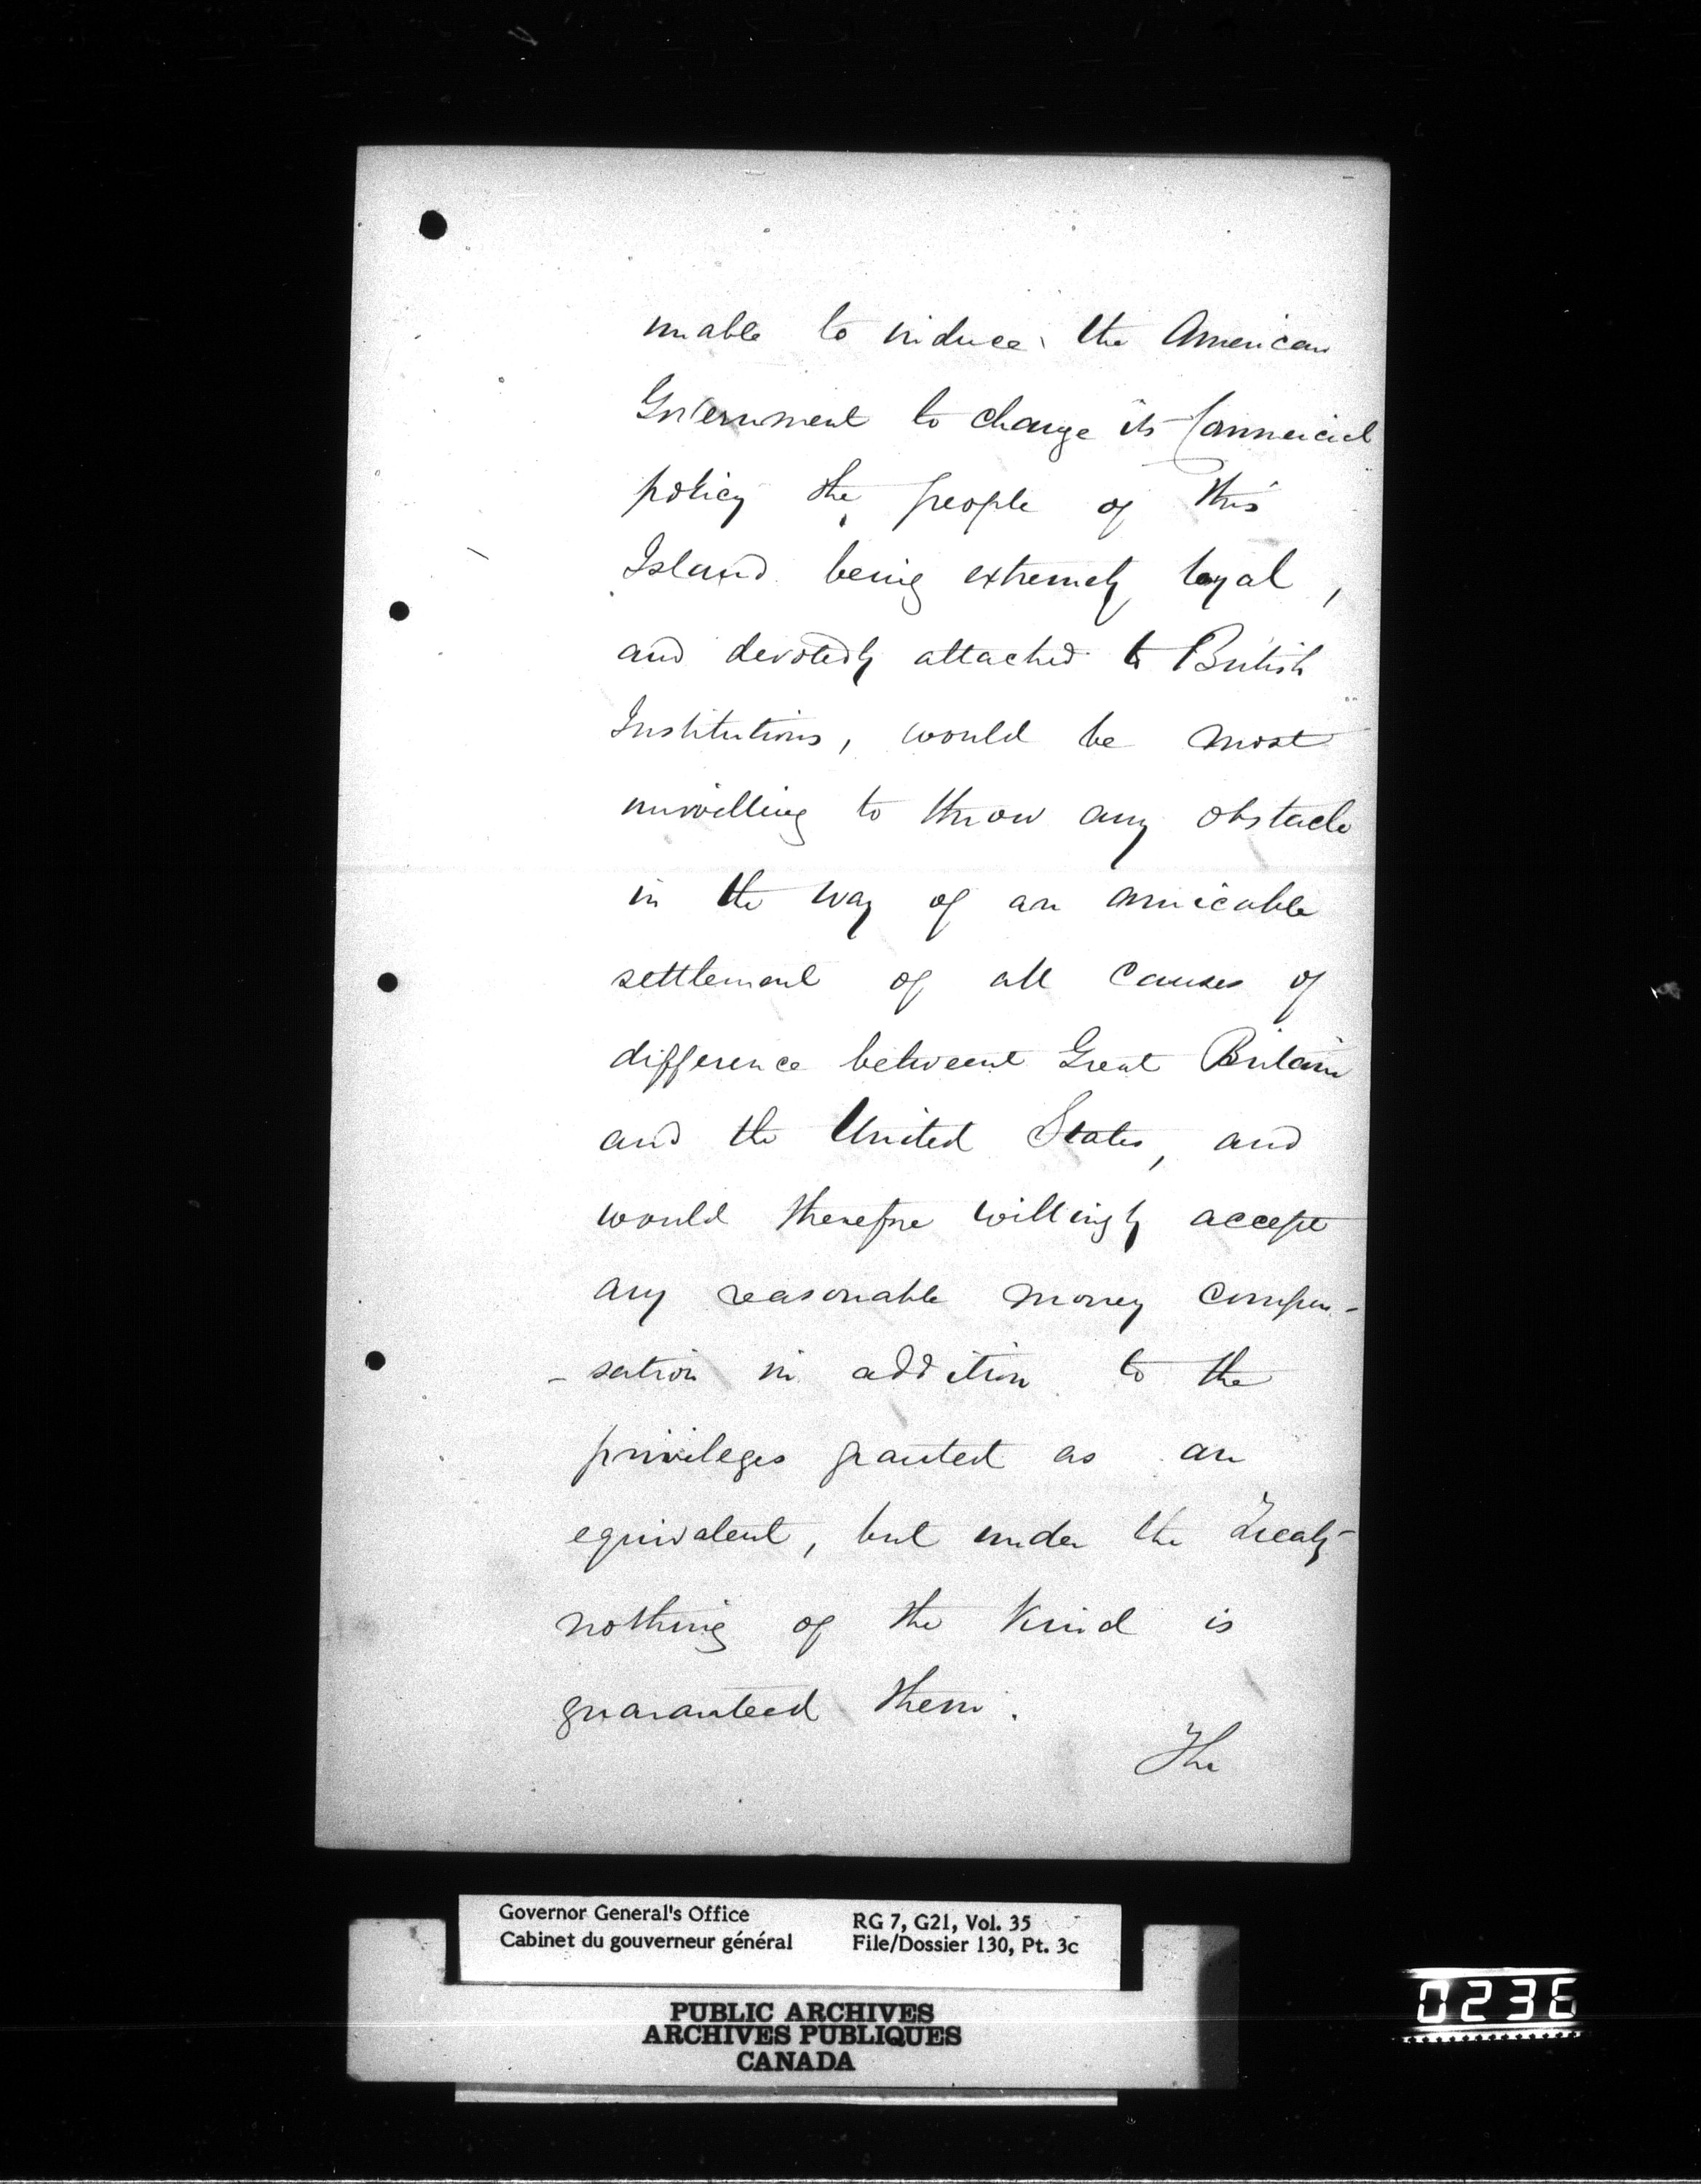 unable to induce the American
Government to change its Commercial
policy the people of this
Island being extremely loyal,
and devotedly attached to British
Institutions, would be most
unwilling to throw any obstacle
in the way of an amicable
settlement of all causes of
difference between Great Britain
and the United States, and
would therefore willingly accept
any reasonable money compen-
-sation in addition to the
privileges granted as an
equivalent, but under the Treaty
nothing of the kind is
guaranteed them.
The
Governor General's Office
Cabinet du gouverneur général
RG 7, G21, Vol. 35
File/Dossier 130, Pt. 3c
PUBLIC ARCHIVES
ARCHIVES PUBLIQUES
CANADA
0236